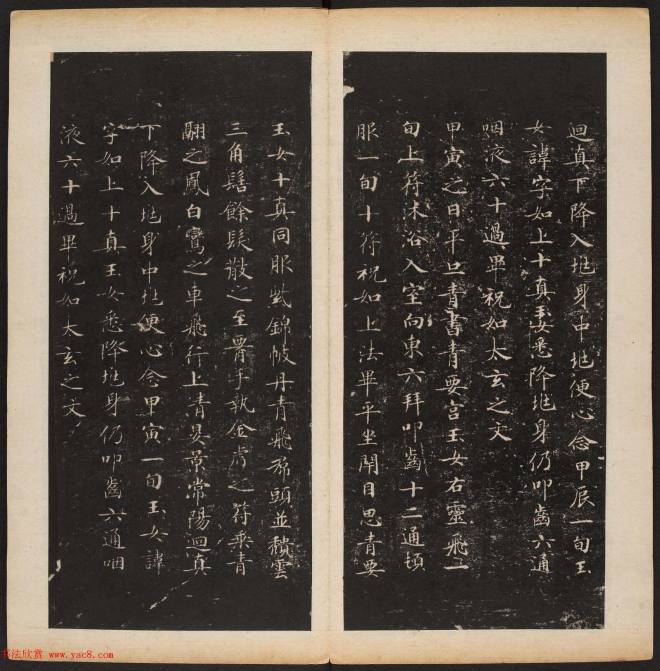 迴真下降入地身中地便心念甲辰一旬玉
女諱字如上十真玉女悉降地身仍叩齒六通
咽液六十過畢祝如太玄之文
甲寅之日平旦青書青要宮玉女右靈飛一
旬上符沐浴入室向東六拜叩齒十二通頓
服一旬十符祝如上法畢平坐閉目思青要
玉女十真同服紫錦帔丹青飛裙頭並穨雲
三角髻餘髮散之至要手執金虎之符乘青
翮之鳳白鸞之車飛行上清晏景常陽迴真
下降入地身中地便心念甲寅一旬玉女諱
字如上十真玉女悉降地身仍叩齒六通咽
液六十過畢祝如太玄之文
书法欣赏 www.yac8.com